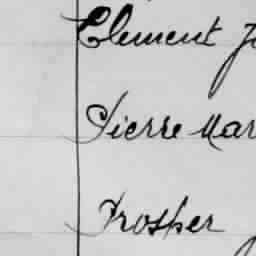 Clement J
Pierre Mar
Prosper